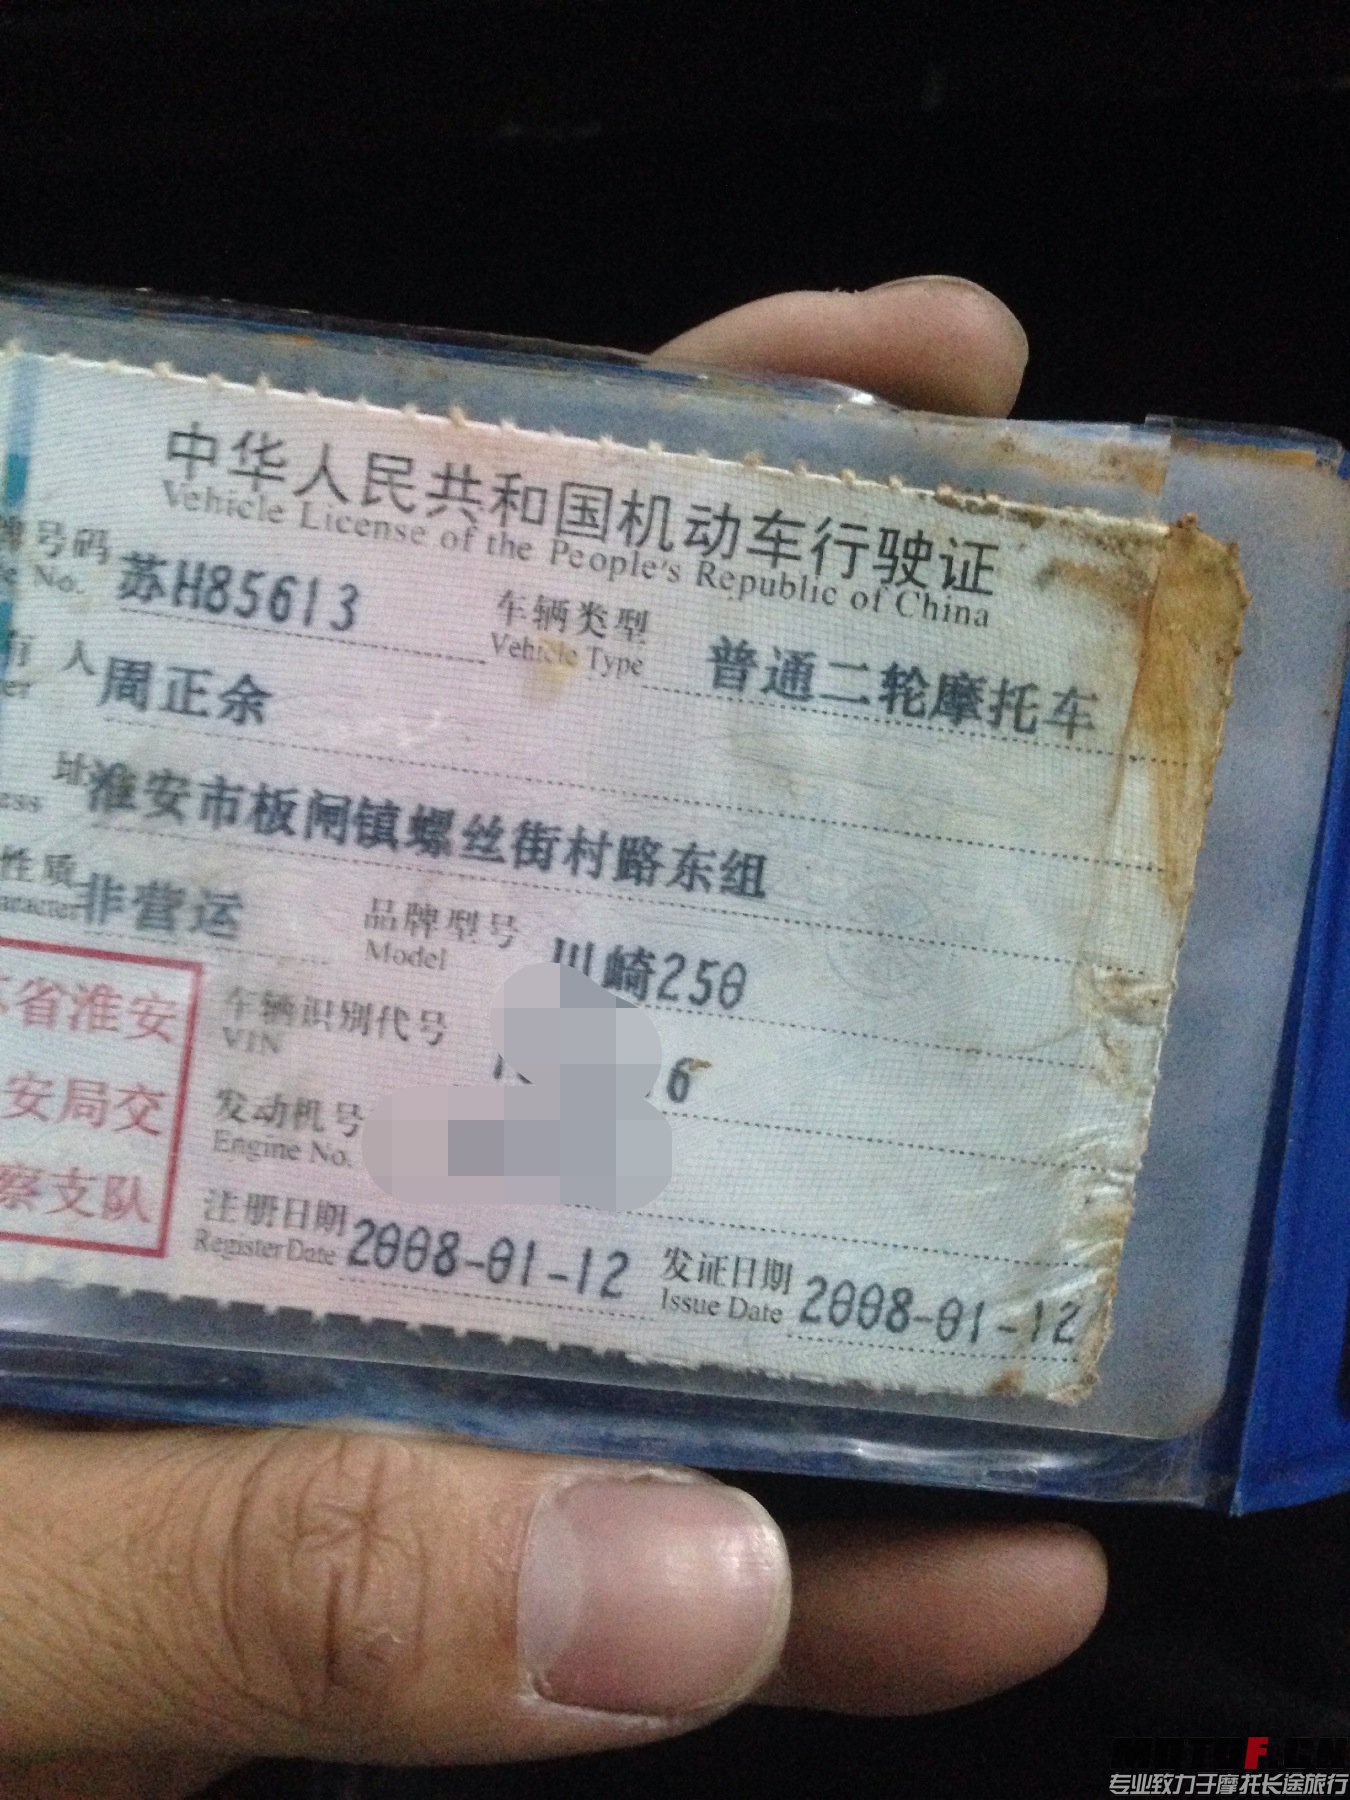 中华人民共和国机动车行驶证
Vehicle License of the People's Republic of China
号码 苏H85613 车辆类型 普通二轮摩托车
No. Vehicle Type
人 周正余
址 淮安市板闸镇螺丝街村路东组
性质 非营运 品牌型号 川崎250
Model
省淮安 车辆识别代号 6
VIN
安局交 发动机号
Engine No.
察支队 注册日期 2008-01-12 发证日期 2008-01-12
Register Date Issue Date
专业致力于摩托长途旅行